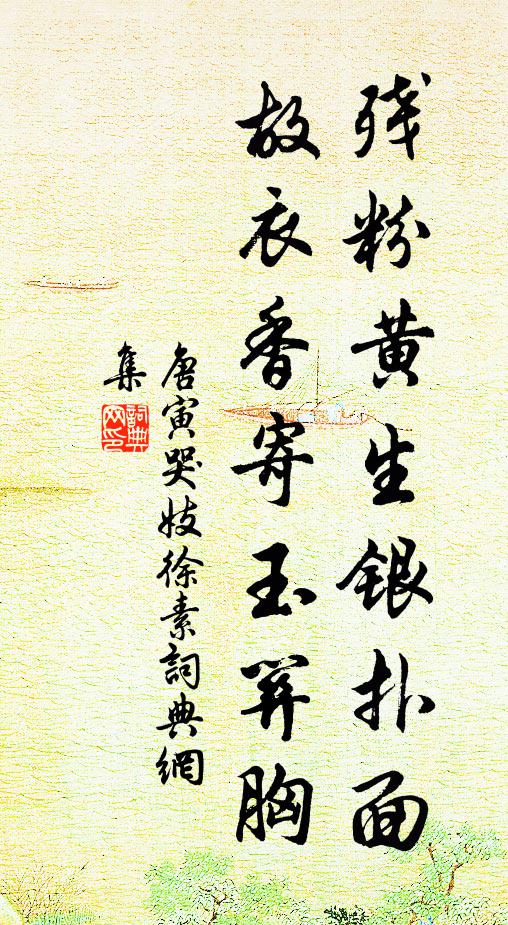 残粉黄生银扑面
故衣香寄玉关胸
唐寅哭妓徐素詞典網
集
詞典
网印